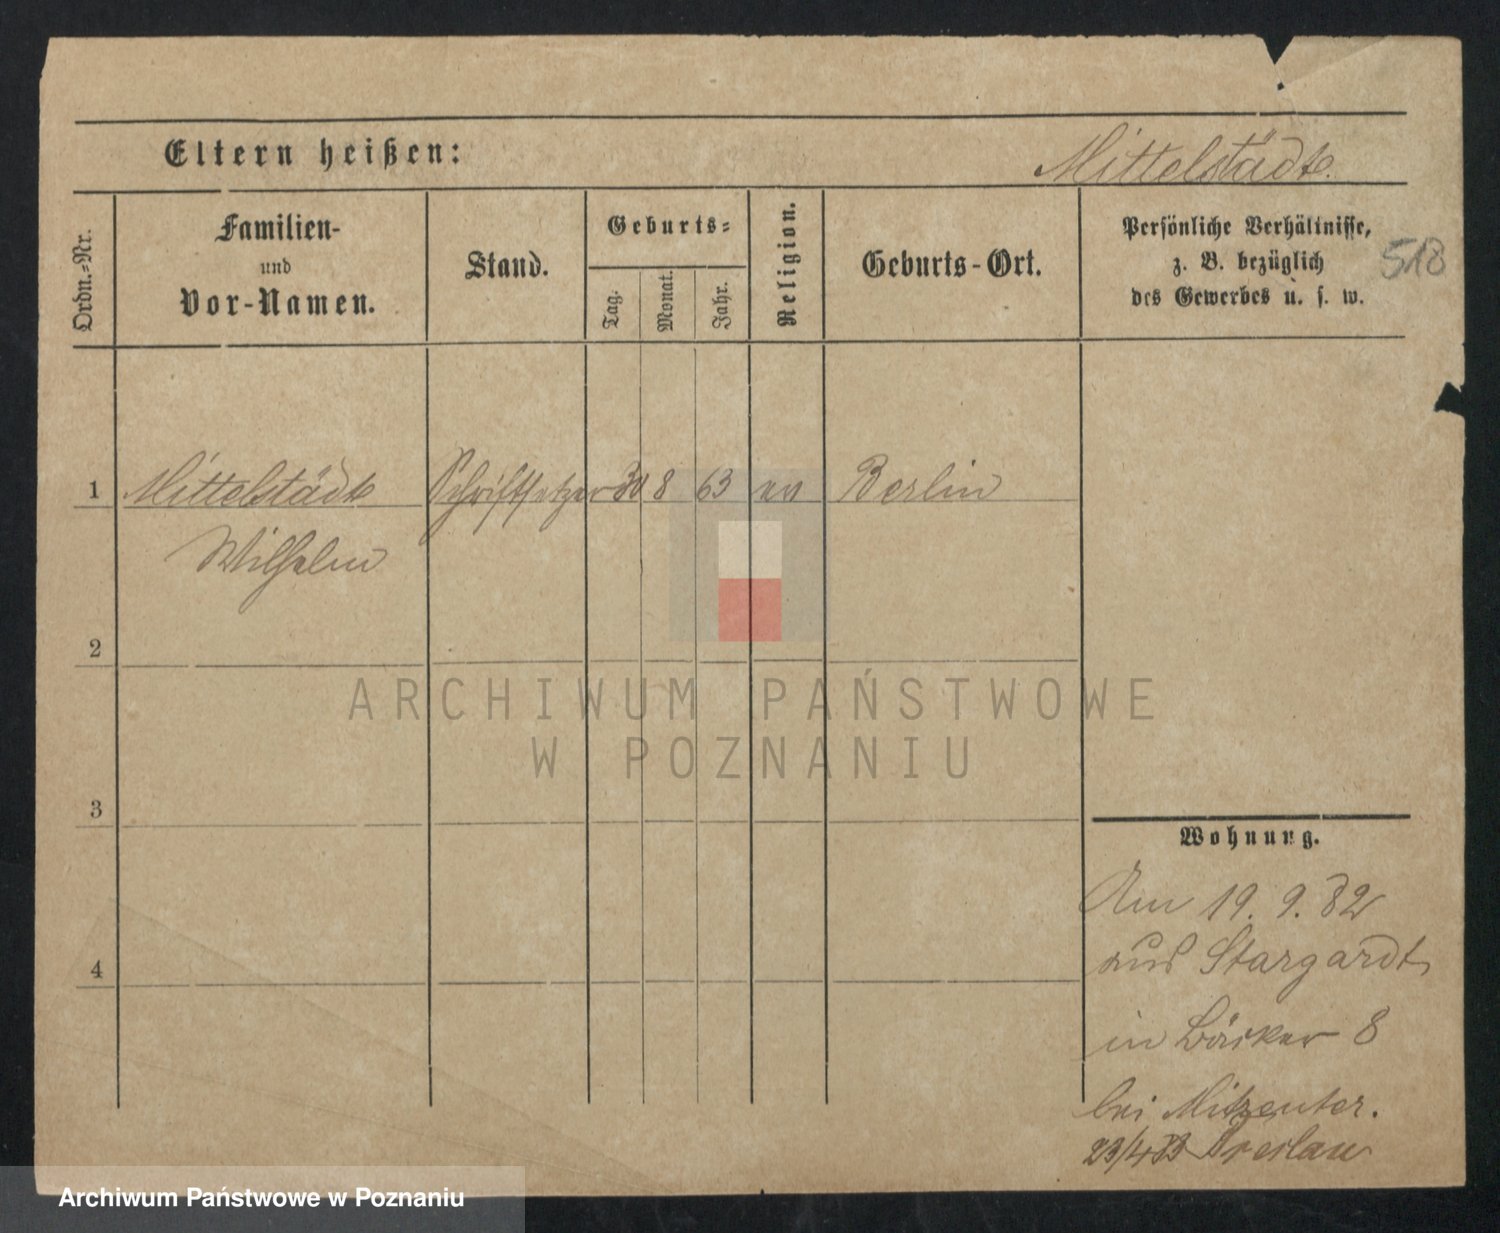 Eltern heißen:
Mittelstädt.
Ordn.=Nr.
Familien-
und
Vor-Namen.
Stand.
Geburts=
Tag.
Monat.
Jahr.
Religion.
Geburts-Ort.
Persönliche Verhältnisse,
z. B. bezüglich
des Gewerbes u. s. w.
518
1 Mittelstädt Schriftsetzer 30 8 63 ev Berlin
Wilhelm
2
3
4
Wohnung.
Am 19. 9. 82
aus Stargardt
in Bäcker 8
bei Mitzenter.
23/4 83 Breslau
ARCHIWUM PAŃSTWOWE
W POZNANIU
Archiwum Państwowe w Poznaniu